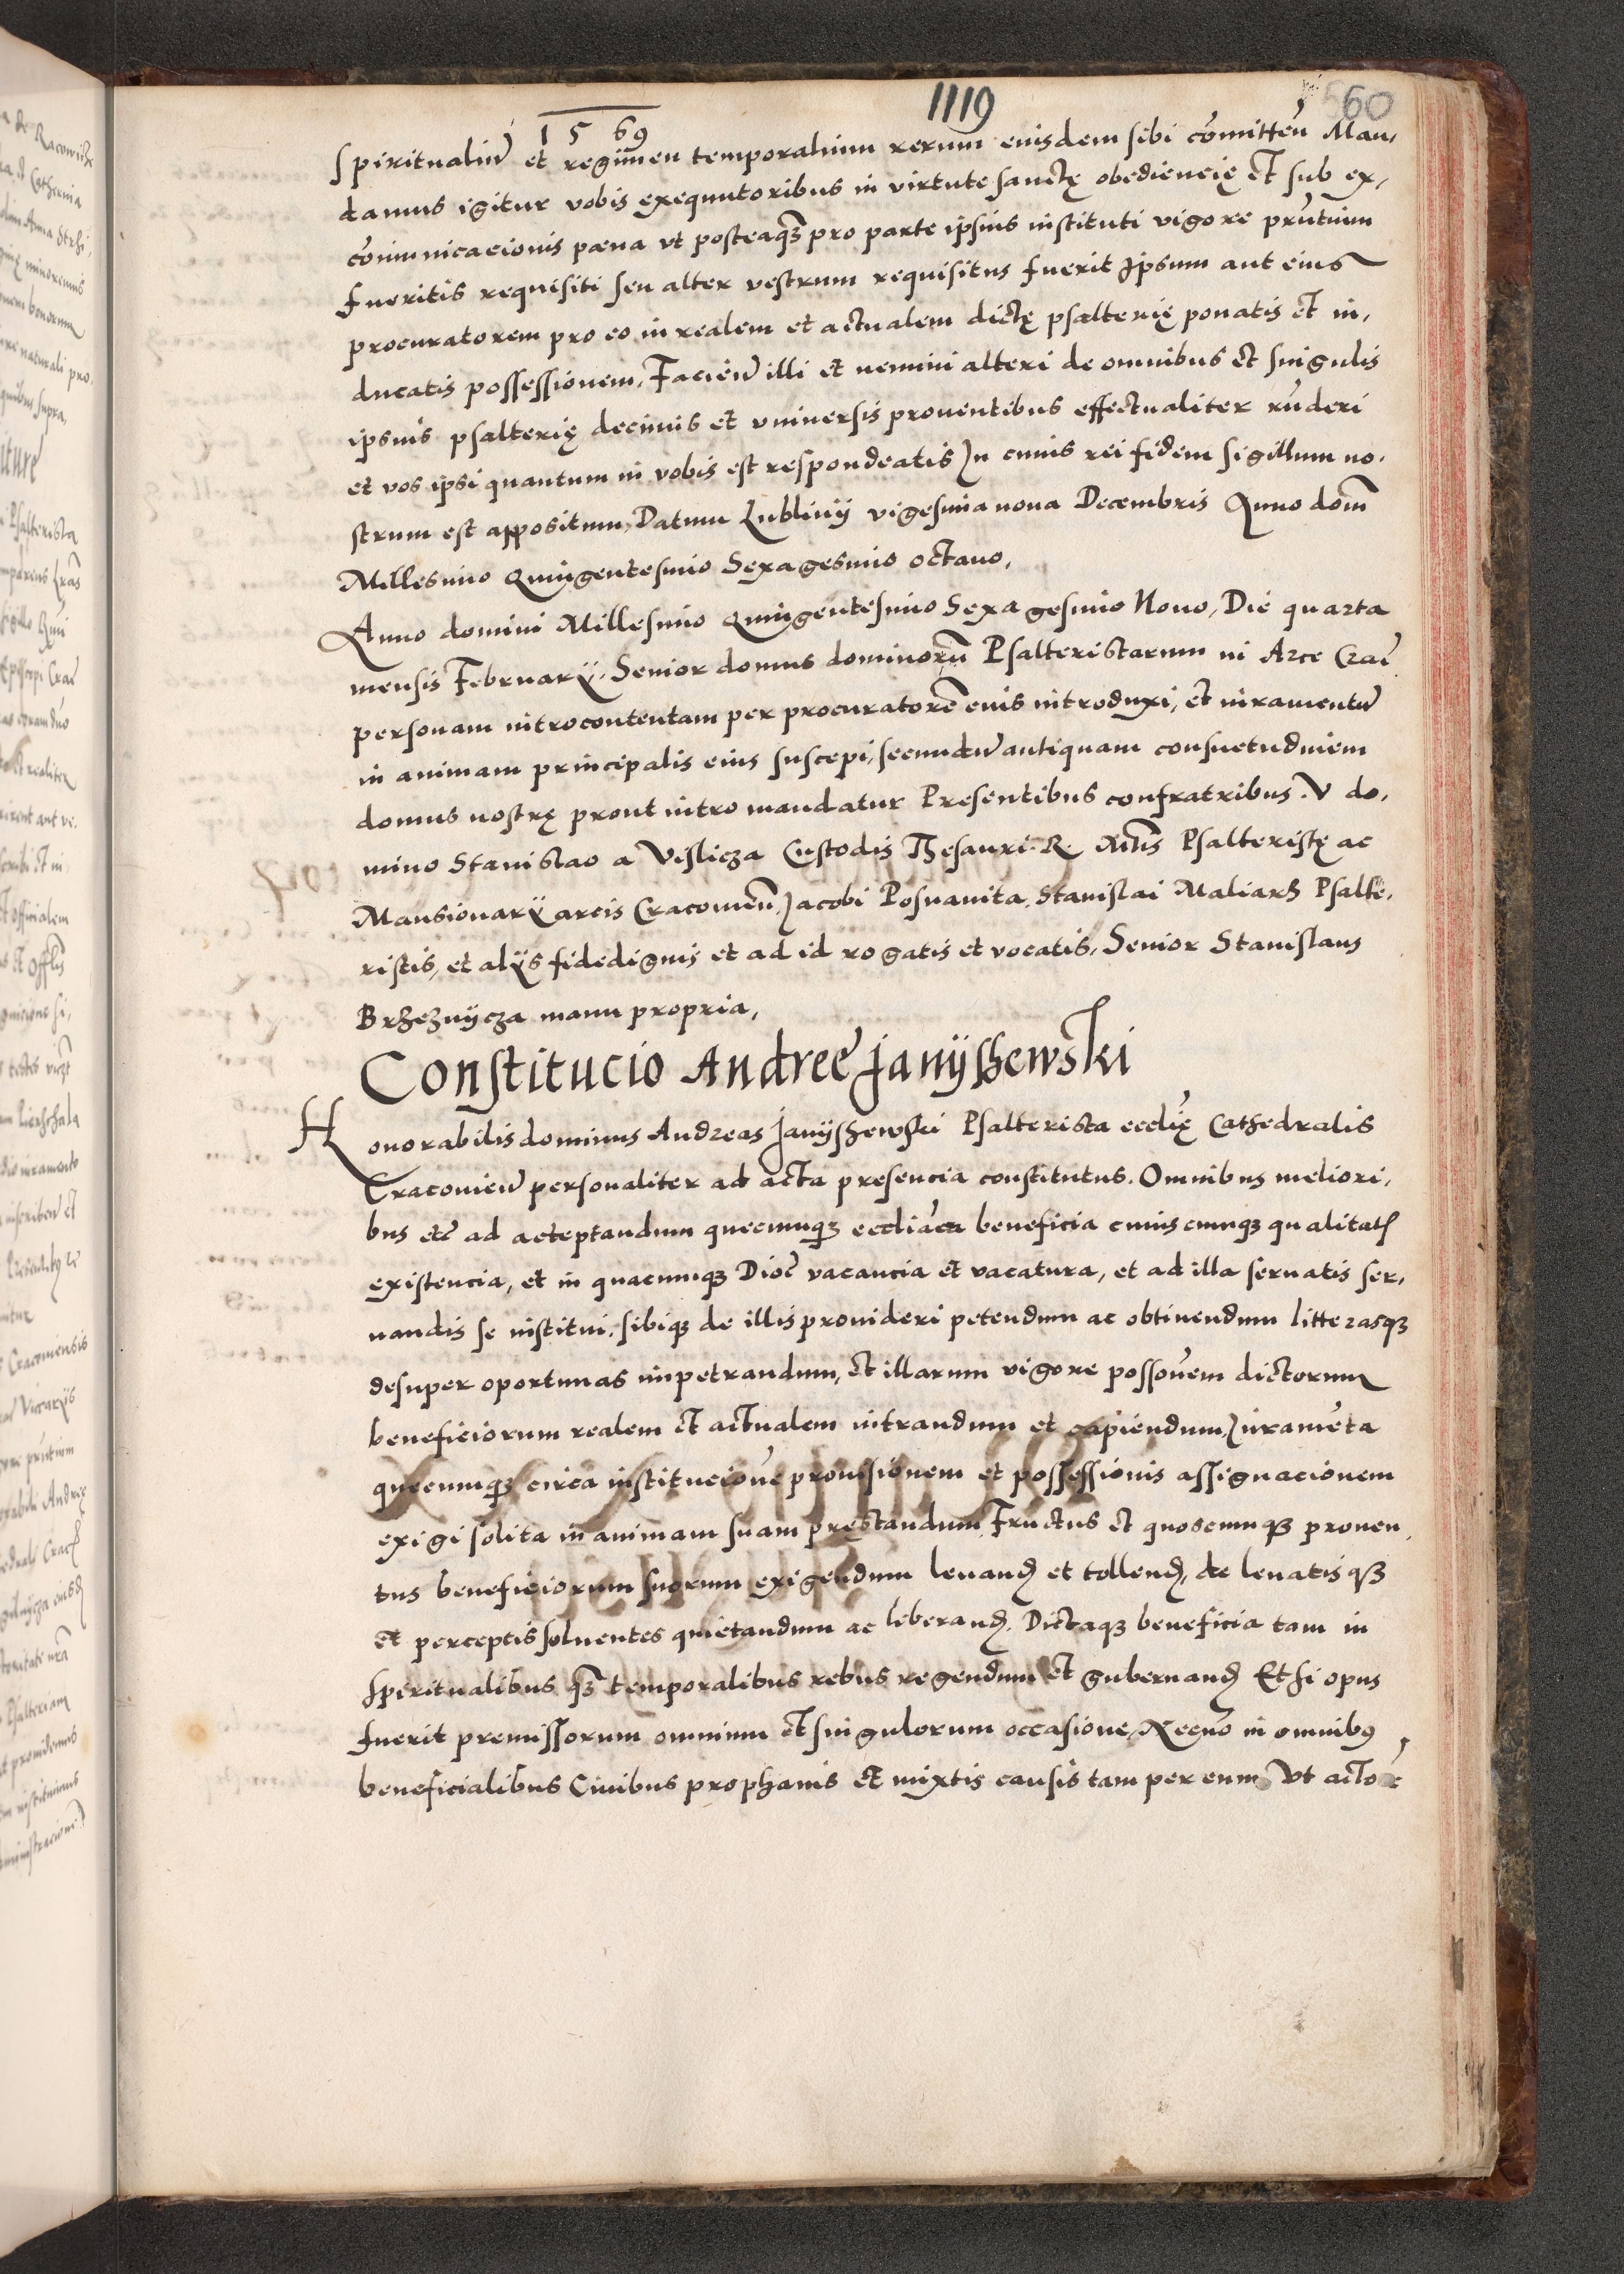 1119
560
1569
spiritualiũ et regimen temporalium rerum eiusdem sibi comitteñ Man,
damus igitur vobis exequutoribus in virtute sanctę obedieneię et sub ex,
cõmunicacionis pœna vt posteaqȝ pro parte ipsius instituti vigore pñtium
fueritis requisiti seu alter vestrum requisitus fuerit ipsum aut eius
procuratorem pro eo in realem et actualem dictę psalterię ponatis et in,
ducatis possessionem, Facieñ illi et nemini alteri de omnibus et singulis
ipsius psalterię decimis et vniversis proventibus effectualiter rñderi
et vos ipsi quantum in vobis est respondeatis In cuius rei fidem sigillum no,
strum est appositum, Datum Lublinij vigesima nona Decembris Anno dom̃
Millesimo Quingentesimo Sexagesimo octauo,
Anno domini Millesimo Quingentesimo Sexagesimo Nono, Die quarta
mensis Februarij, Senior domus dominorũ Psalteristarum in Arce Crac̃
personam introcontentam per procuratorẽ euis introduxi, et iuramentũ
in animam principalis eius suscepi, secundũ antiquam consuetudinem
domus nostrę prout intro mandatur Presentibus confratribus. V do,
mino Stanislao a Vislicza Custodis Thesauri. R. Mtis Psalteristę ac
Mansionarij arcis Cracovieñ, Jacobi Posnanita, Stanislai Maliarz Psalte,
ristis, et alijs fidedignis et ad id rogatis et vocatis, Senior Stanislaus
Brzeznijcza manu propria,
Constitucio Andreę Janijshewski
Honorabilis dominus Andreas Janijshewski Psalterista ecclię Cathedralis
Cracovieñ personaliter ad acta presencia constitutus. Omnibus meliori,
bus etc̃ ad acceptandum quecunqȝ eccliãca beneficia cuiuscunqȝ qualitatis
existencia, et in quacunqȝ Dioc̃ vacancia et vacatura, et ad illa servatis ser,
vandis se institui, sibiqȝ de illis provideri petendum ac obtinendum litterasqȝ
desuper oportunas impetrandum, et illarum vigore possõnem dictorum
beneficiorum realem et actualem intrandum et capiendum, Juramẽta
quecunqȝ circa institucionẽ provisionem et possessionis assignacionem
exigi solita in animam suam prestandum, Fructus et quoscunqȝ proven
tus beneficiorum suorum exigendum levand̃ et tollend̃, de levatisqȝ
et perceptis solventes quietandum ac liberand̃. Dictaqȝ beneficia tam in
spiritualibus qȝ temporalibus rebus regendum et gubernand̃ Et si opus
fuerit premissorum omnium et singulorum occasione, Necno in omnibus
beneficialibus Civibus prophanis et mixtis causis tam per eum Vt actore